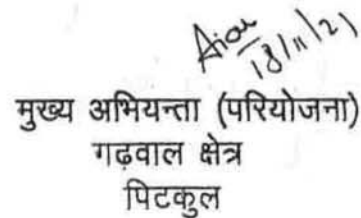 18/11/21
मुख्य अभियन्ता (परियोजना)
गढ़वाल क्षेत्र
पिटकुल